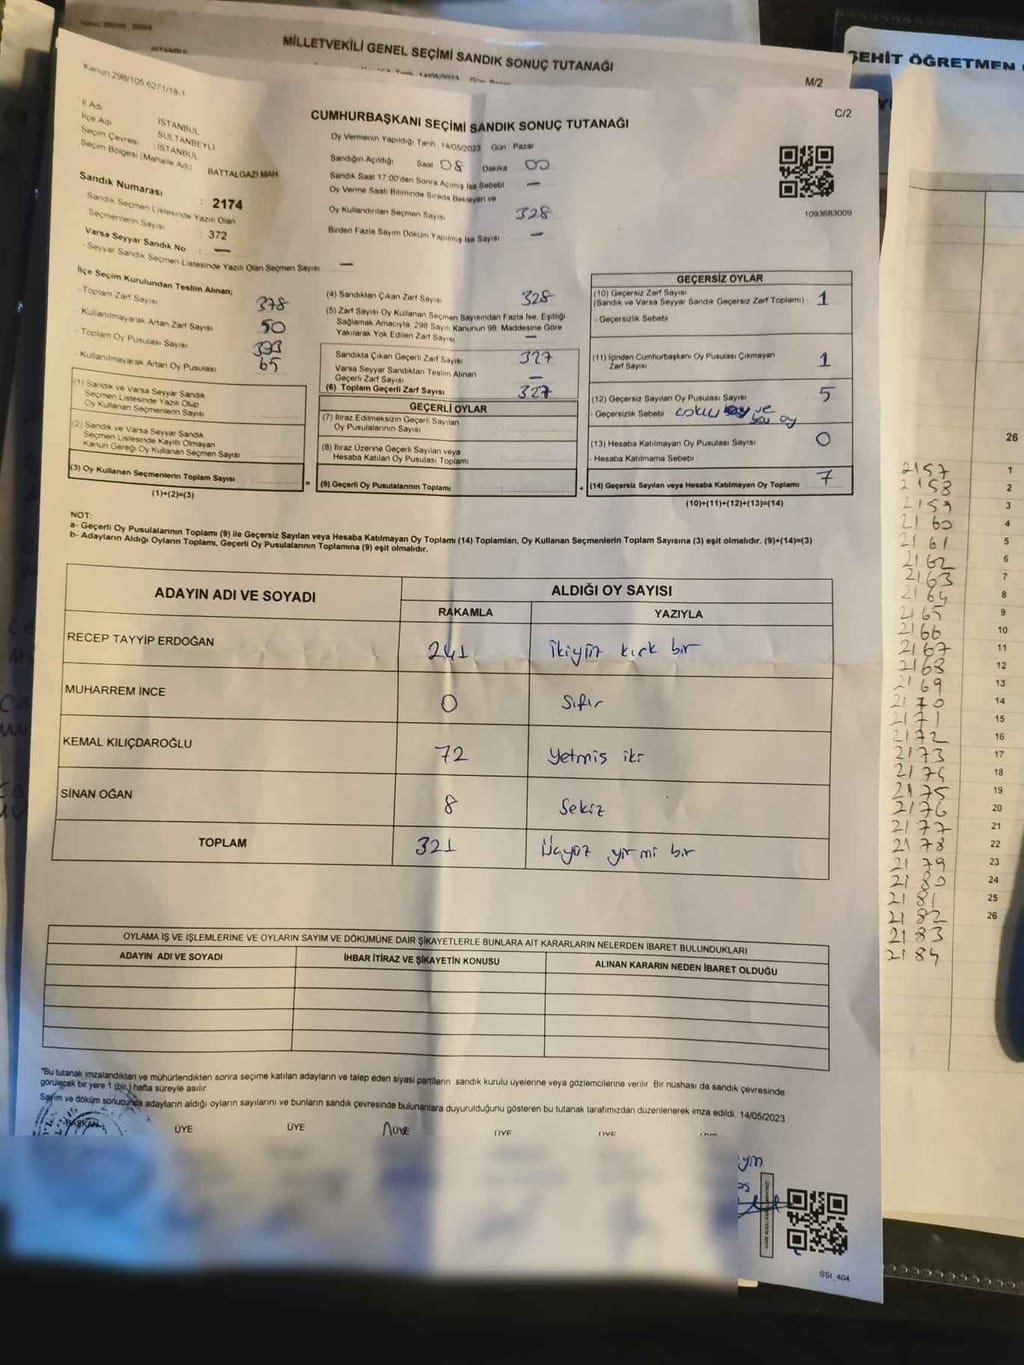 MİLLETVEKİLİ GENEL SEÇİMİ SANDIK SONUÇ TUTANAĞI
M/2
ŞEHİT ÖĞRETMEN
Kanun 298/105,6271/18-1
CUMHURBAŞKANI SEÇİMİ SANDIK SONUÇ TUTANAĞI
C/2
Oy Vermenin Yapıldığı Tarih 14/05/2023 Gün Pazar
İl Adı : İSTANBUL
İlçe Adı : SULTANBEYLİ
Seçim Çevresi : İSTANBUL
Seçim Bölgesi (Mahalle Adı) : BATTALGAZİ MAH
Sandığın Açıldığı Saat 08 Dakika 00
Sandık Saat 17.00'den Sonra Açılmış İse Sebebi —
Oy Verme Saati Bitiminde Sırada Bekleyen ve
Oy Kullandırılan Seçmen Sayısı 328
Birden Fazla Sayım Döküm Yapılmış İse Sayısı —
1093683009
Sandık Numarası : 2174
- Sandık Seçmen Listesinde Yazılı Olan
Seçmenlerin Sayısı : 372
Varsa Seyyar Sandık No : —
- Seyyar Sandık Seçmen Listesinde Yazılı Olan Seçmen Sayısı —
İlçe Seçim Kurulundan Teslim Alınan;
- Toplam Zarf Sayısı 378
- Kullanılmayarak Artan Zarf Sayısı 50
- Toplam Oy Pusulası Sayısı 393
- Kullanılmayarak Artan Oy Pusulası 65
(1) Sandık ve Varsa Seyyar Sandık
Seçmen Listesinde Yazılı Olup
Oy Kullanan Seçmenlerin Sayısı
(2) Sandık ve Varsa Seyyar Sandık
Seçmen Listesinde Kayıtlı Olmayan
Kanun Gereği Oy Kullanan Seçmen Sayısı
(3) Oy Kullanan Seçmenlerin Toplam Sayısı
(1)+(2)=(3)
(4) Sandıktan Çıkan Zarf Sayısı 328
(5) Zarf Sayısı Oy Kullanan Seçmen Sayısından Fazla İse, Eşitliği
Sağlamak Amacıyla, 298 Sayılı Kanunun 98. Maddesine Göre
Yakılarak Yok Edilen Zarf Sayısı —
Sandıkta Çıkan Geçerli Zarf Sayısı 327
Varsa Seyyar Sandıktan Teslim Alınan
Geçerli Zarf Sayısı —
(6) Toplam Geçerli Zarf Sayısı 327
GEÇERLİ OYLAR
(7) İtiraz Edilmeksizin Geçerli Sayılan
Oy Pusulalarının Sayısı
(8) İtiraz Üzerine Geçerli Sayılan veya
Hesaba Katılan Oy Pusulası Toplamı
(9) Geçerli Oy Pusulalarının Toplamı
GEÇERSİZ OYLAR
(10) Geçersiz Zarf Sayısı
(Sandık ve Varsa Seyyar Sandık Geçersiz Zarf Toplamı) : 1
- Geçersizlik Sebebi
(11) İçinden Cumhurbaşkanı Oy Pusulası Çıkmayan
Zarf Sayısı 1
(12) Geçersiz Sayılan Oy Pusulası Sayısı 5
- Geçersizlik Sebebi
(13) Hesaba Katılmayan Oy Pusulası Sayısı 0
- Hesaba Katılmama Sebebi
(14) Geçersiz Sayılan veya Hesaba Katılmayan Oy Toplamı 7
(10)+(11)+(12)+(13)=(14)
NOT:
a- Geçerli Oy Pusulalarının Toplamı (9) ile Geçersiz Sayılan veya Hesaba Katılmayan Oy Toplamı (14) Toplamları, Oy Kullanan Seçmenlerin Toplam Sayısına (3) eşit olmalıdır. (9)+(14)=(3)
b- Adayların Aldığı Oyların Toplamı, Geçerli Oy Pusulalarının Toplamına (9) eşit olmalıdır.
ADAYIN ADI VE SOYADI
ALDIĞI OY SAYISI
RAKAMLA YAZIYLA
RECEP TAYYİP ERDOĞAN 241 ikiyüz kırk bir
MUHARREM İNCE 0 Sıfır
KEMAL KILIÇDAROĞLU 72 Yetmiş iki
SİNAN OĞAN 8 Sekiz
TOPLAM 321 Üçyüz yirmi bir
OYLAMA İŞ VE İŞLEMLERİNE VE OYLARIN SAYIM VE DÖKÜMÜNE DAİR ŞİKAYETLERLE BUNLARA AİT KARARLARIN NELERDEN İBARET BULUNDUKLARI
ADAYIN ADI VE SOYADI
İHBAR İTİRAZ VE ŞİKAYETİN KONUSU
ALINAN KARARIN NEDEN İBARET OLDUĞU
"Bu tutanak imzalandıktan ve mühürlendikten sonra seçime katılan adayların ve talep eden siyasi partilerin sandık kurulu üyelerine veya gözlemcilerine verilir. Bir nüshası da sandık çevresinde
görülecek bir yere 1 (bir) hafta süreyle asılır.
Sayım ve döküm sonucunda adayların aldığı oyların sayılarını ve bunların sandık çevresinde bulunanlara duyurulduğunu gösteren bu tutanak tarafımızdan düzenlenerek imza edildi. 14/05/2023
BAŞKAN ÜYE ÜYE ÜYE ÜYE ÜYE
SSİ_404
26
2157 1
2158 2
2159 3
2160 4
2161 5
2162 6
2163 7
2164 8
2165 9
2166 10
2167 11
2168 12
2169 13
2170 14
2171 15
2172 16
2173 17
2174 18
2175 19
2176 20
2177 21
2178 22
2179 23
2180 24
2181 25
2182 26
2183
2184